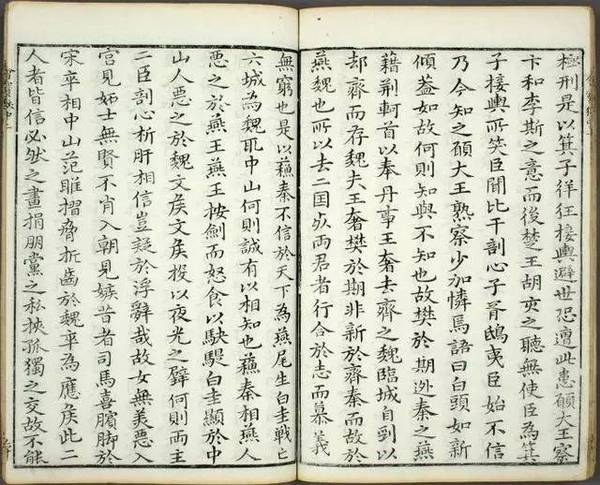 極刑是以箕子佯狂接輿避世恐遭此患願大王察
卞和李斯之意而後楚王胡亥之聽無使臣為箕
子接輿所笑臣聞比干剖心子胥鴟夷臣始不信
乃今知之願大王熟察少加憐焉語曰白頭如新
傾蓋如故何則知與不知也故樊於期逃秦之燕
藉荆軻首以奉丹事王奢去齊之魏臨城自剄以
却齊而存魏夫王奢樊於期非新於齊秦而故於
燕魏也所以去二囯死兩君者行合於志而慕義
無窮也是以蘇秦不信於天下為燕尾生白圭戰亡
六城為魏取中山何則誠有以相知也蘇秦相燕人
惡之於燕王燕王按劍而怒食以駃騠白圭顯於中
山人惡之於魏文侯文侯投以夜光之璧何則兩主
二臣剖心析肝相信豈疑於浮辭哉故女無美惡入
宮見妬士無賢不肖入朝見嫉昔者司馬喜臏脚於
宋卒相中山范雎摺脅折齒於魏卒為應侯此二
人者皆信必然之畫捐朋黨之私挾孤獨之交故不能